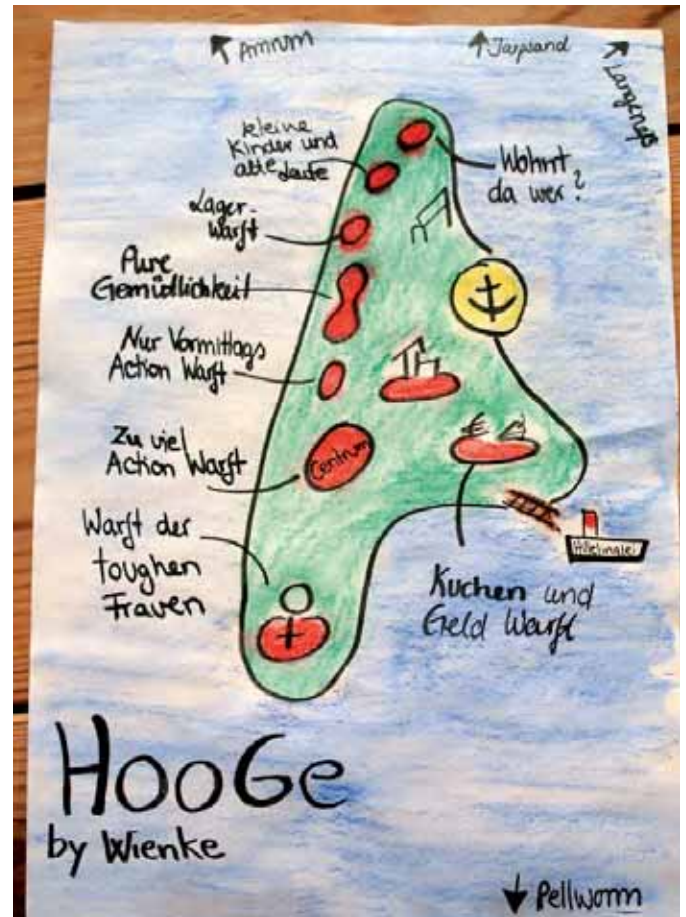 Amrum
Japsand
Langeneß
kleine
Kinder und
alte Leute
Wohnt
da wer?
Lager-
warft
Pure
Gemüdlichkeit
Nur Vormittags
Action Warft
Zu viel
Action Warft
Centrum
Warft der
toughen
Frauen
Kuchen und
Geld Warft
HooGe
by Wienke
Pellworm